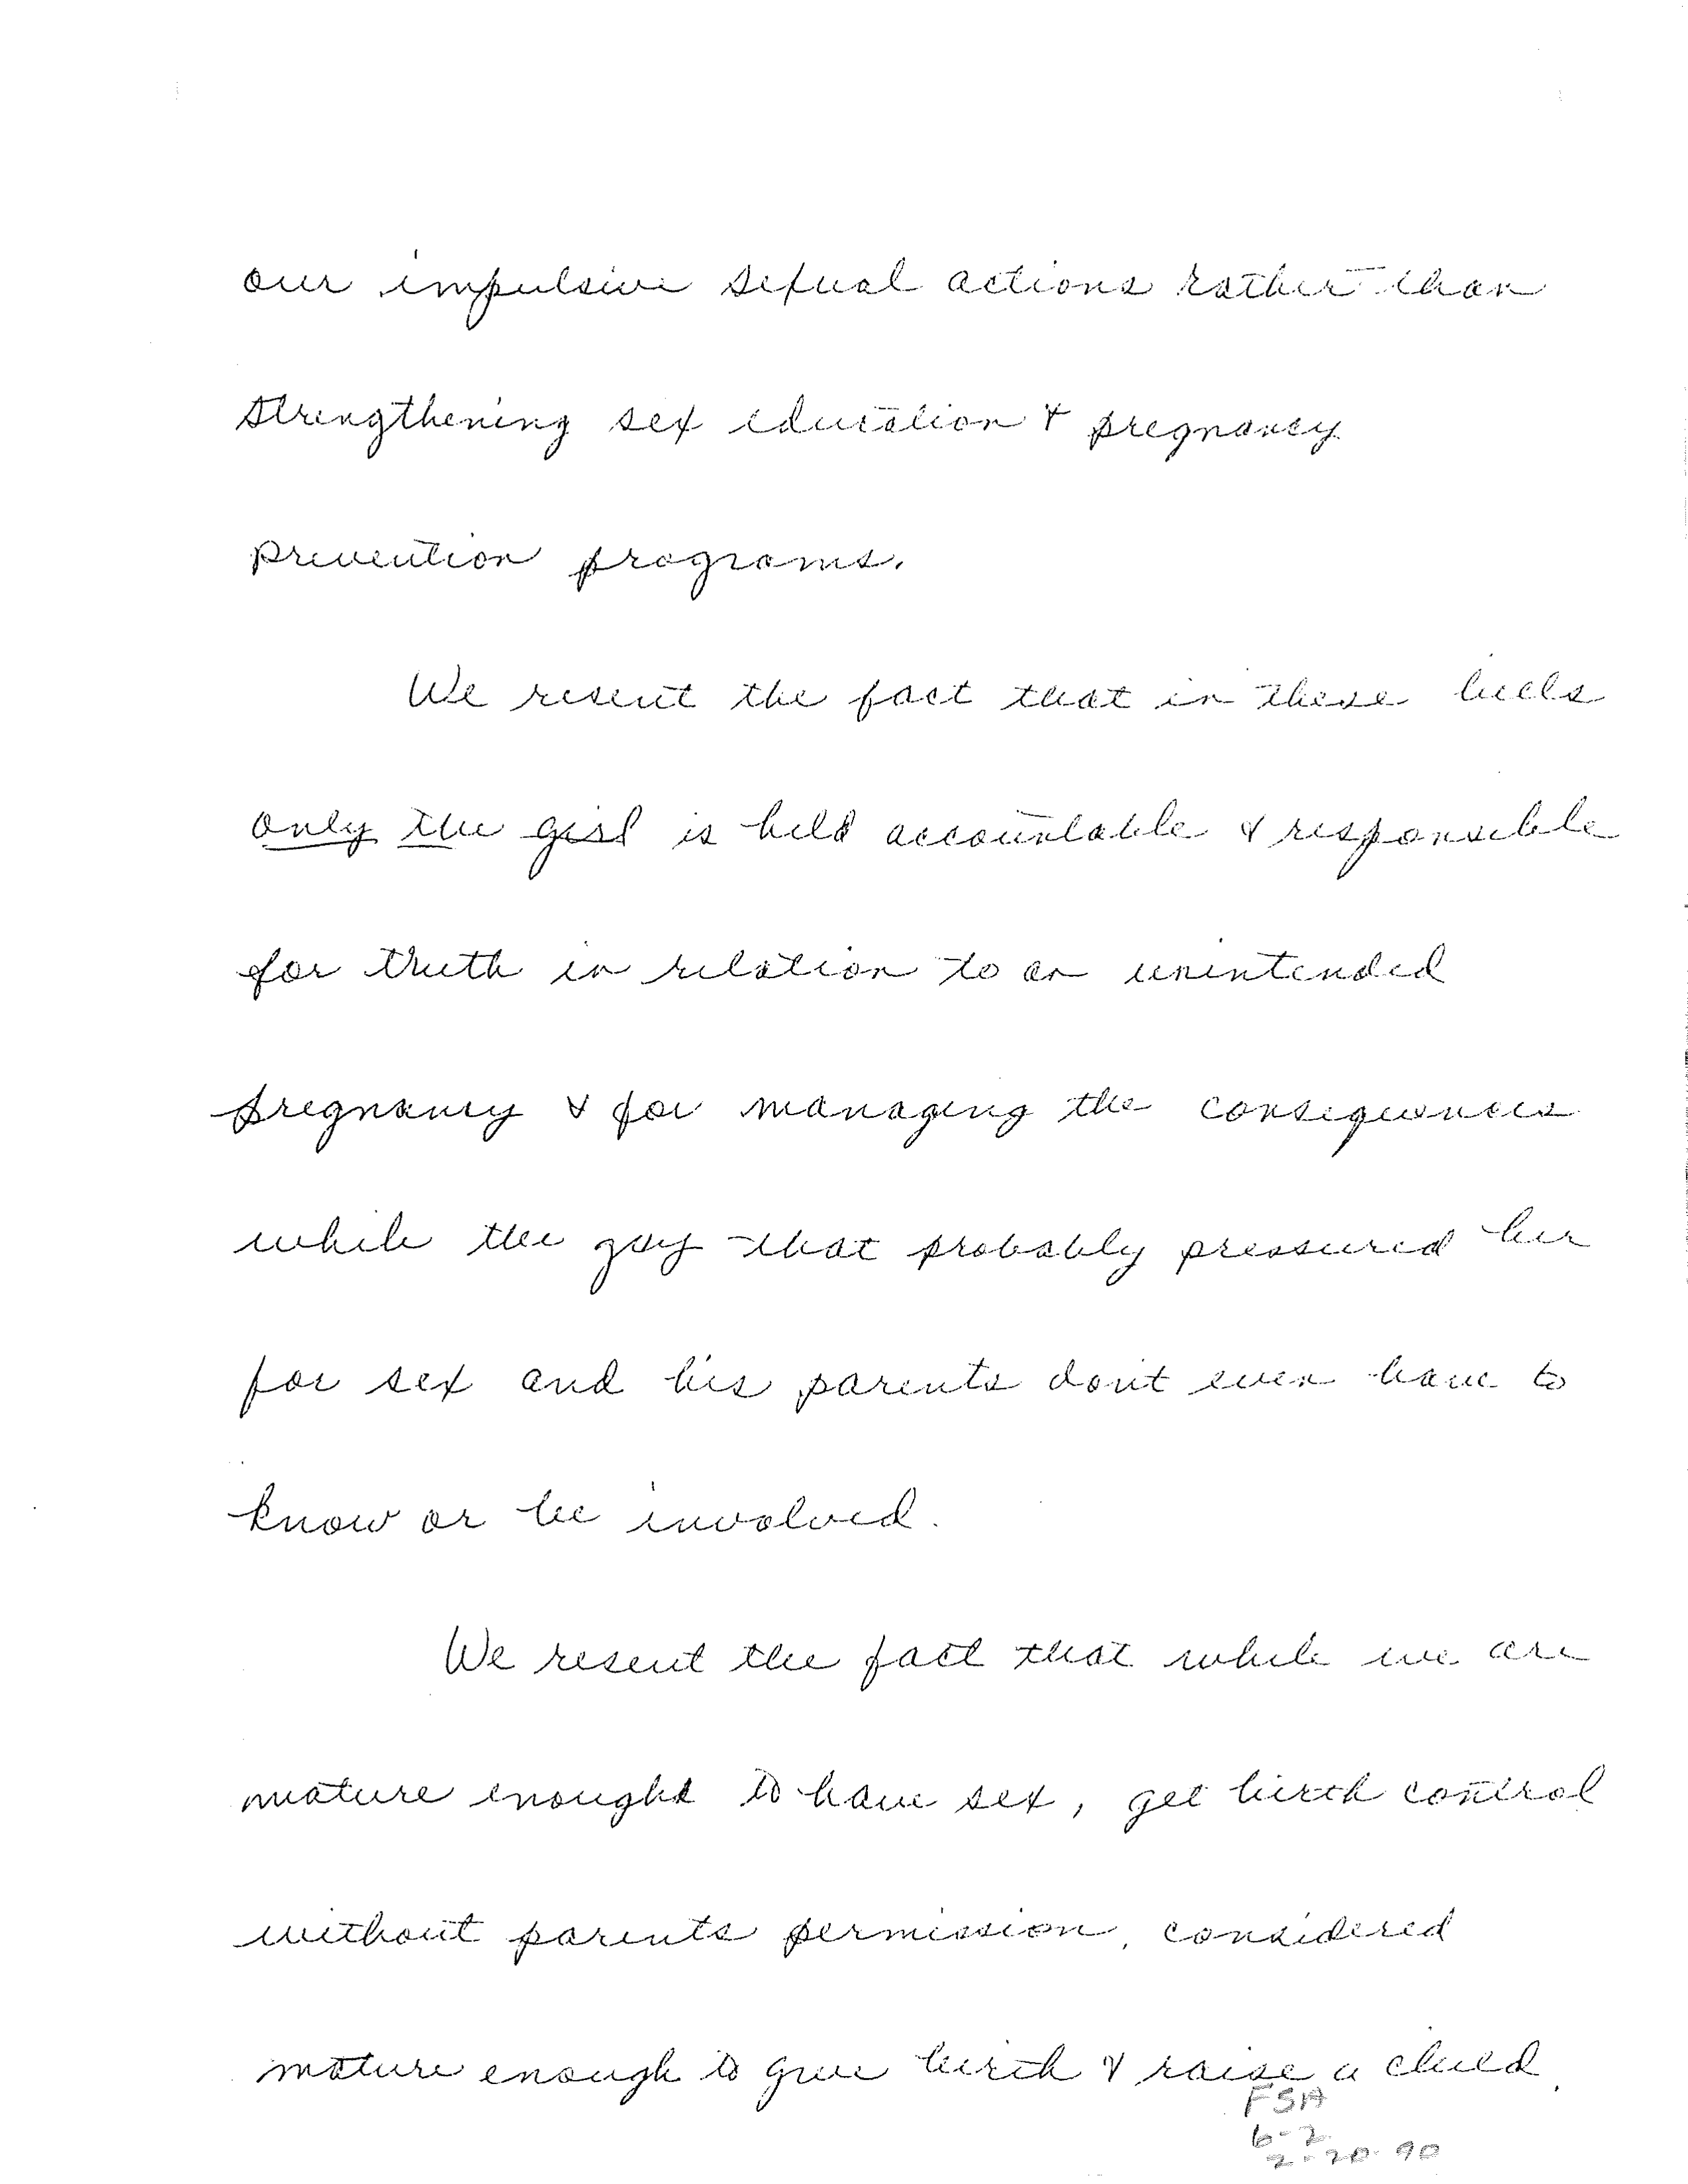 our impulsive sexual actions rather than
strengthening sex education & pregnancy
prevention programs.
We resent the fact that in these bills
only the girl is held accountable & responsible
for truth in relation to an unintended
pregnancy & for managing the consequences
while the guy that probably pressured her
for sex and his parents don't even have to
know or be involved.
We resent the fact that while we are
mature enough to have sex, get birth control
without parents permission, considered
mature enough to give birth & raise a child,
FSA
6-2
2-20-90